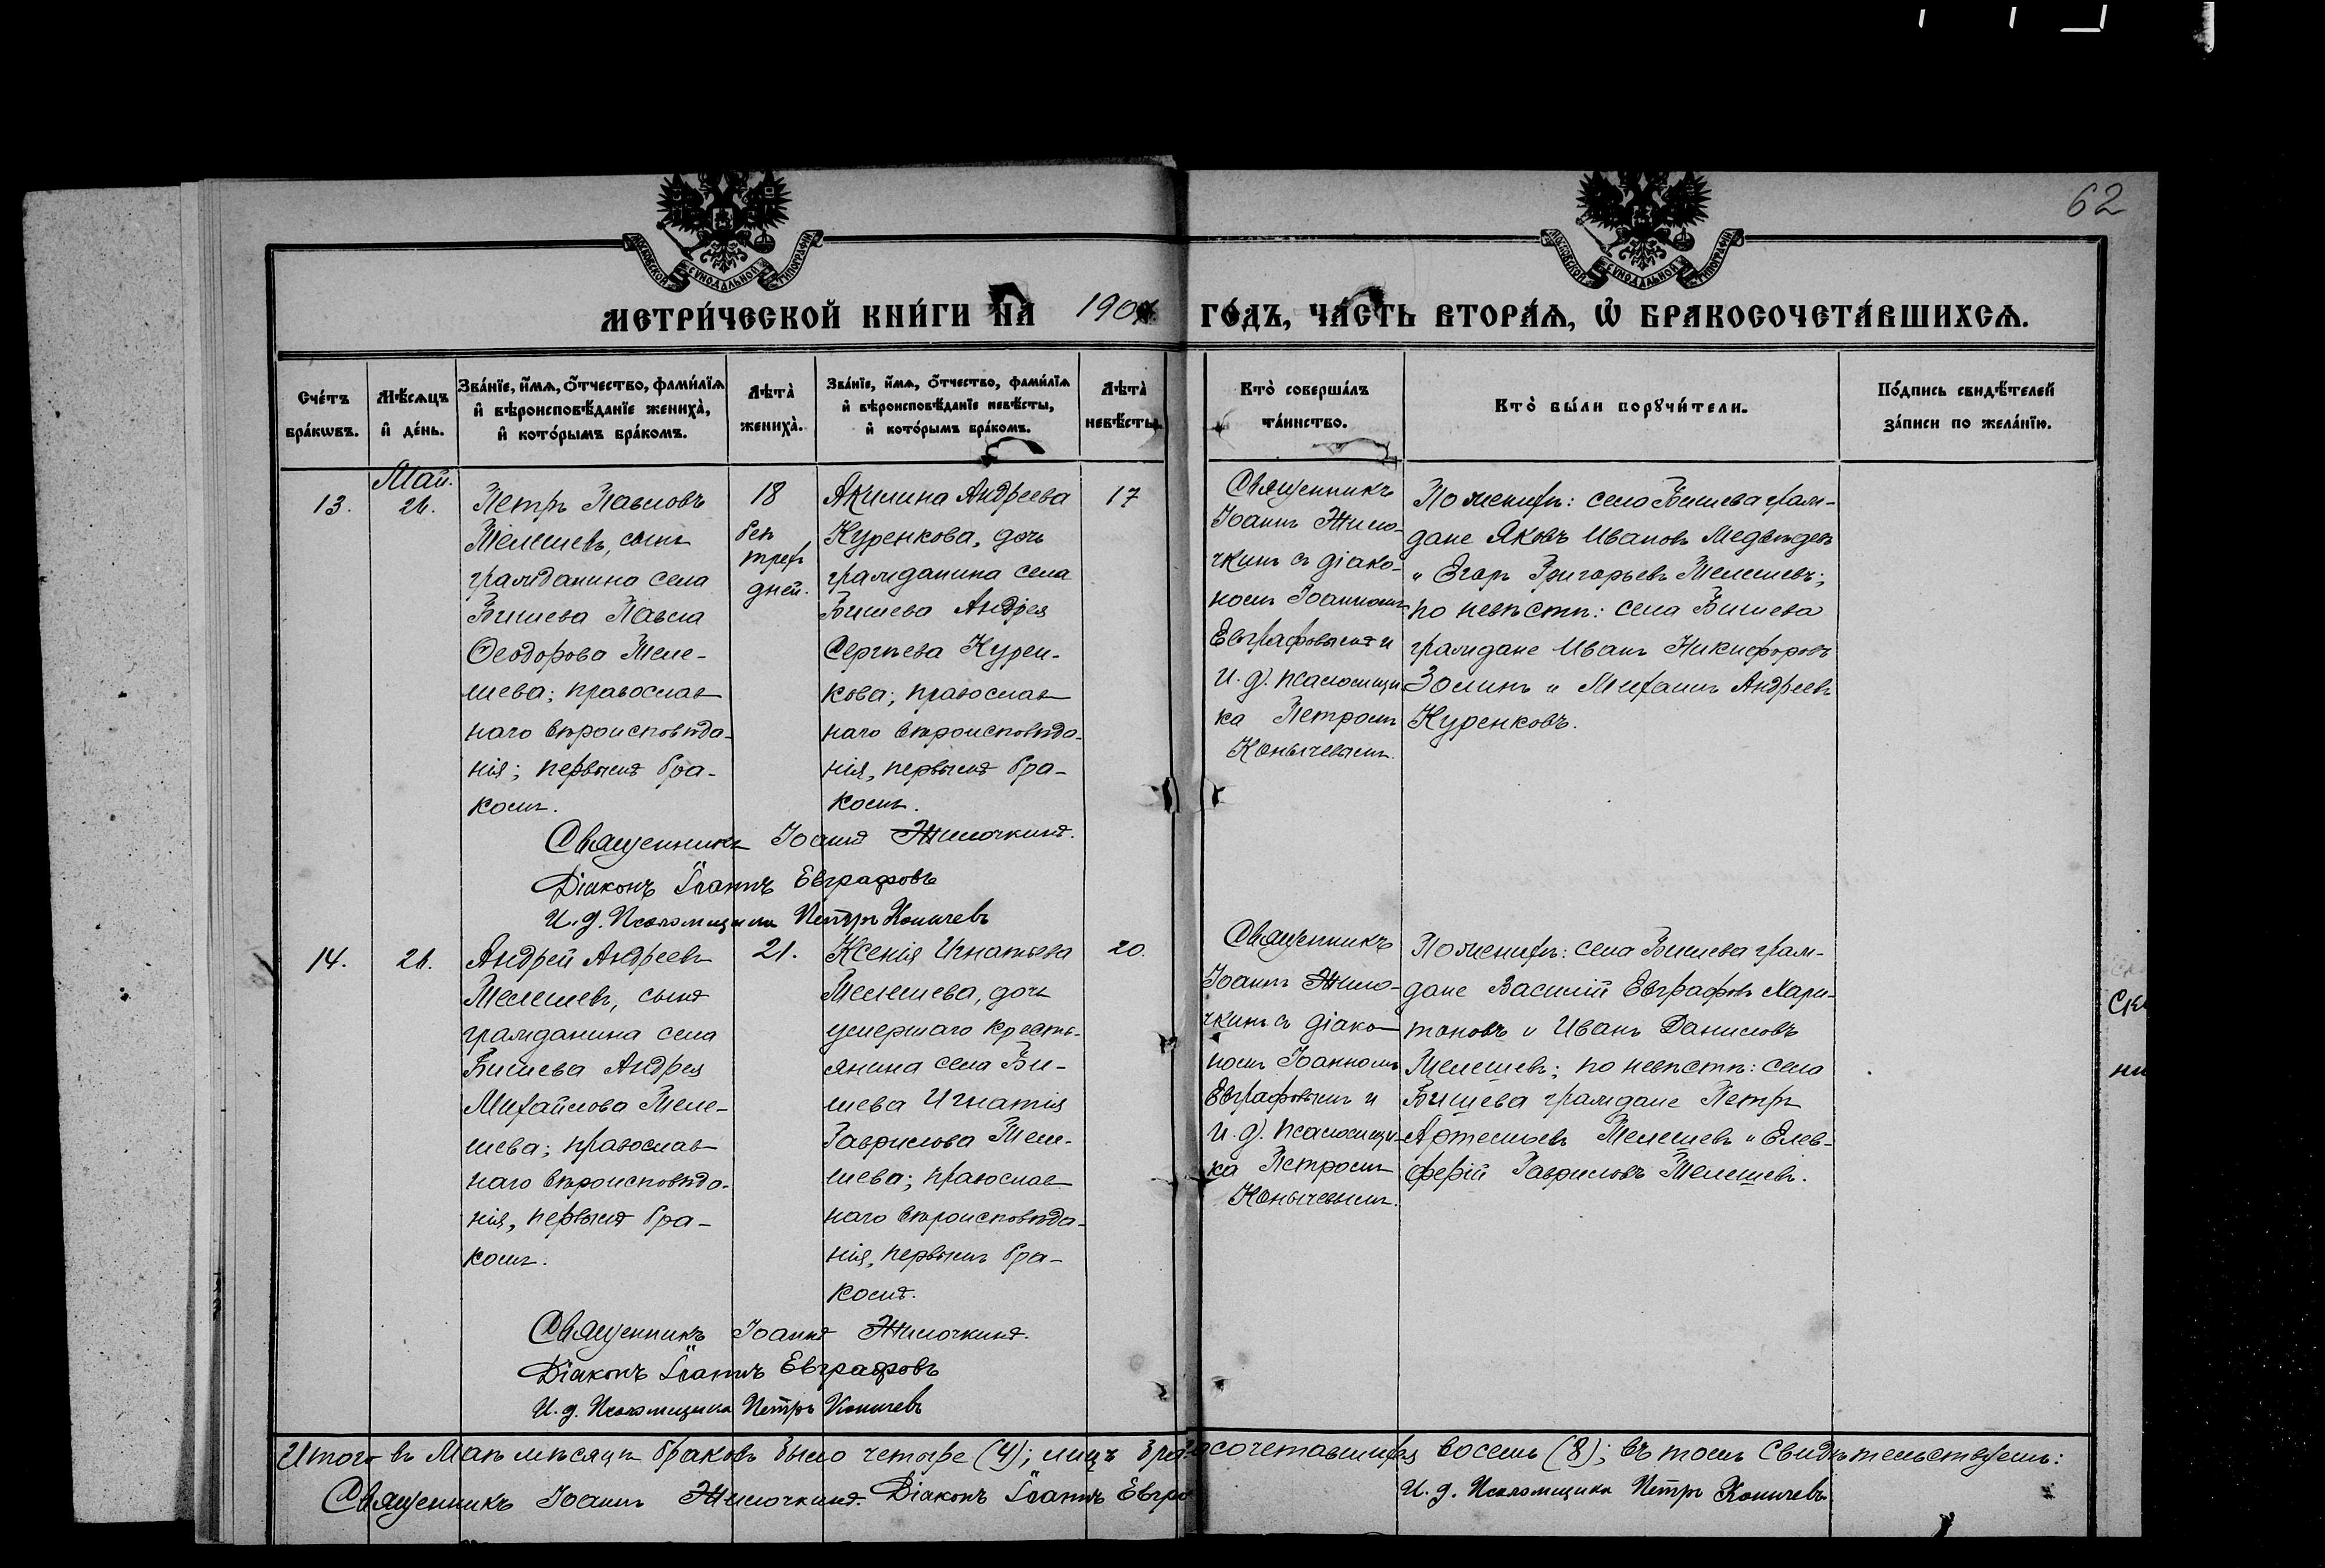 62
МОСКОВСКОЙ СѴНОДАЛЬНОЙ ТИПОГРАФІИ
МОСКОВСКОЙ СѴНОДАЛЬНОЙ ТИПОГРАФІИ
МЕТРИ́ЧЕСКОЙ КНИ́ГИ НА 190 ГО́ДЪ, ЧА́СТЬ ВТОРА́Ѧ, Ѿ БРАКОСОЧЕТА́ВШИХСѦ.
Сче́тъ
бра́кѡвъ.
Мѣ́сѧцъ
и҆ де́нь.
Зва́нїе, и҆́мѧ, ѻ҆́тчество, фами́лїѧ
и҆ вѣроисповѣ́данїе жениха̀,
и҆ кото́рымъ бра́комъ.
Лѣта̀
жениха̀.
Зва́нїе, и҆́мѧ, ѻ҆́тчество, фами́лїѧ
и҆ вѣроисповѣ́данїе невѣ́сты,
и҆ кото́рымъ бра́комъ.
Лѣта̀
невѣ́сты.
Кто̀ соверша́лъ
та́инство.
Кто̀ бы́ли порꙋчи́тели.
По́дпись свидѣ́телей
за́писи по жела́нїю.
Май.
13.
26.
Петръ Павловъ
Телешевъ, сынъ
гражданина села
Бишева Павла
Ѳеодорова Теле-
шева; православ-
наго вѣроисповѣда-
нія; первымъ бра-
комъ.
18
безъ
трехъ
дней.
Акилина Андреева
Куренкова, дочь
гражданина села
Бишева Андрея
Сергѣева Курен-
кова; православ-
наго вѣроисповѣда-
нія, первымъ бра-
комъ.
17
Священникъ
Іоаннъ Жило-
чкинъ съ діако-
номъ Іоанномъ
Евграфовымъ и
и. д. псаломщи-
ка Петромъ
Конычевымъ.
По женихѣ: села Бишева граж-
дане Яковъ Ивановъ Медвѣдевъ
и Егоръ Григорьевъ Телешевъ;
по невѣстѣ: села Бишева
граждане Иванъ Никифоровъ
Золинъ и Михаилъ Андреевъ
Куренковъ.
Священникъ Іоаннъ Жилочкинъ.
Діаконъ Іоаннъ Евграфовъ
И. д. Псаломщика Петръ Конычевъ
14.
26.
Андрей Андреевъ
Телешевъ, сынъ
гражданина села
Бишева Андрея
Михайлова Теле-
шева; православ-
наго вѣроисповѣда-
нія, первымъ бра-
комъ.
21.
Ксенія Игнатьева
Телешева, дочь
умершаго кресть-
янина села Би-
шева Игнатія
Гаврилова Теле-
шева; православ-
наго вѣроисповѣда-
нія, первымъ бра-
комъ.
20.
Священникъ
Іоаннъ Жило-
чкинъ съ діако-
номъ Іоанномъ
Евграфовымъ и
и. д. псаломщи-
ка Петромъ
Конычевымъ.
По женихѣ: села Бишева граж-
дане Василій Евграфовъ Хари-
тоновъ и Иванъ Даниловъ
Телешевъ; по невѣстѣ: села
Бишева граждане Петръ
Артемьевъ Телешевъ и Елев-
ферій Гавриловъ Телешевъ.
Священникъ Іоаннъ Жилочкинъ.
Діаконъ Іоаннъ Евграфовъ
И. д. Псаломщика Петръ Конычевъ
Итого въ Маѣ мѣсяцѣ браковъ было четыре (4); лицъ бракосочетавшихся восемь (8); въ томъ свидѣтельствуемъ:
Священникъ Іоаннъ Жилочкинъ. Діаконъ Іоаннъ Евгра
И. д. Псаломщика Петръ Конычевъ